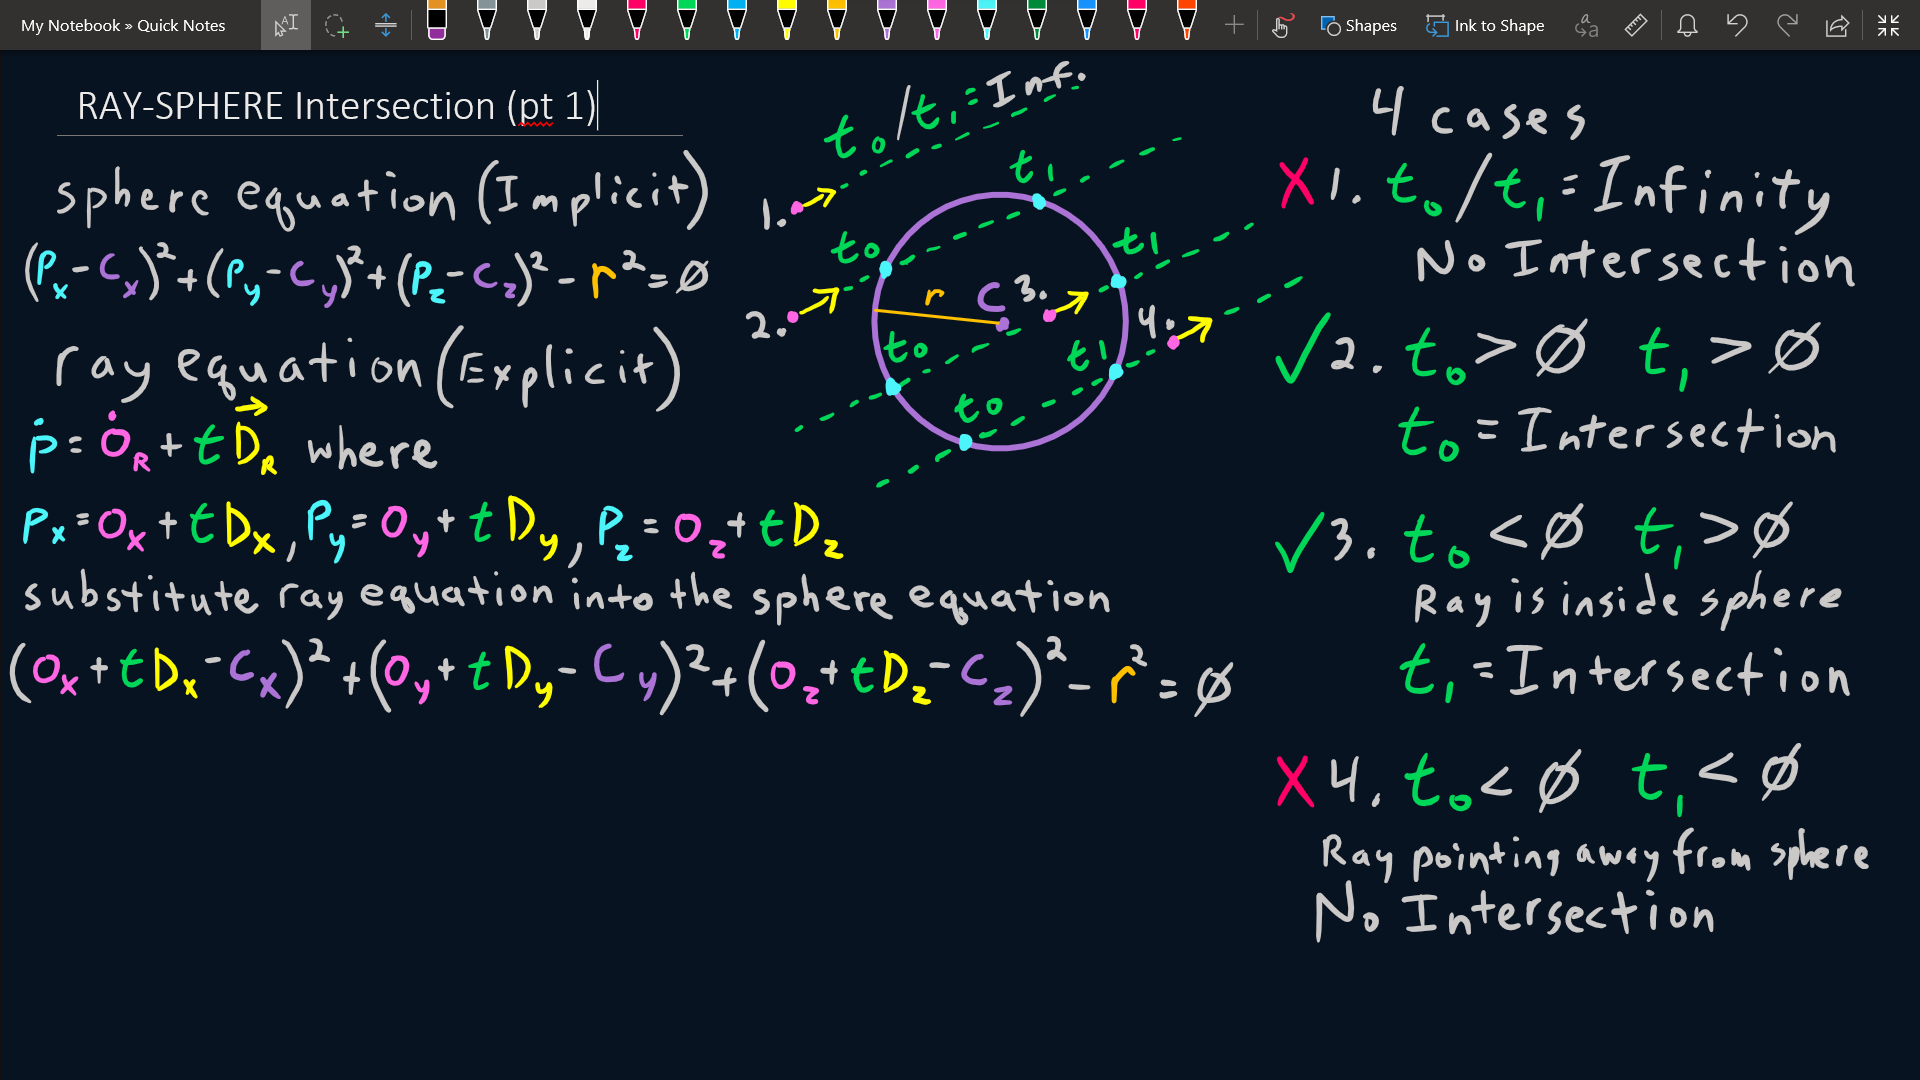 My Notebook » Quick Notes
Shapes
Ink to Shape
RAY-SPHERE Intersection (pt 1)
sphere equation (Implicit)
(Px - Cx)² + (Py - Cy)² + (Pz - Cz)² - r² = Ø
ray equation (Explicit)
p = OR + t DR where
Px = Ox + t Dx, Py = Oy + t Dy, Pz = Oz + t Dz
substitute ray equation into the sphere equation
(Ox + t Dx - Cx)² + (Oy + t Dy - Cy)² + (Oz + t Dz - Cz)² - r² = Ø
t0/t1 = Inf.
1.
t1
t0
t1
2.
r
C
3.
4.
t0
t1
t0
4 cases
X 1. t0/t1 = Infinity
No Intersection
✓ 2. t0 > Ø t1 > Ø
t0 = Intersection
✓ 3. t0 < Ø t1 > Ø
Ray is inside sphere
t1 = Intersection
X 4. t0 < Ø t1 < Ø
Ray pointing away from sphere
No Intersection